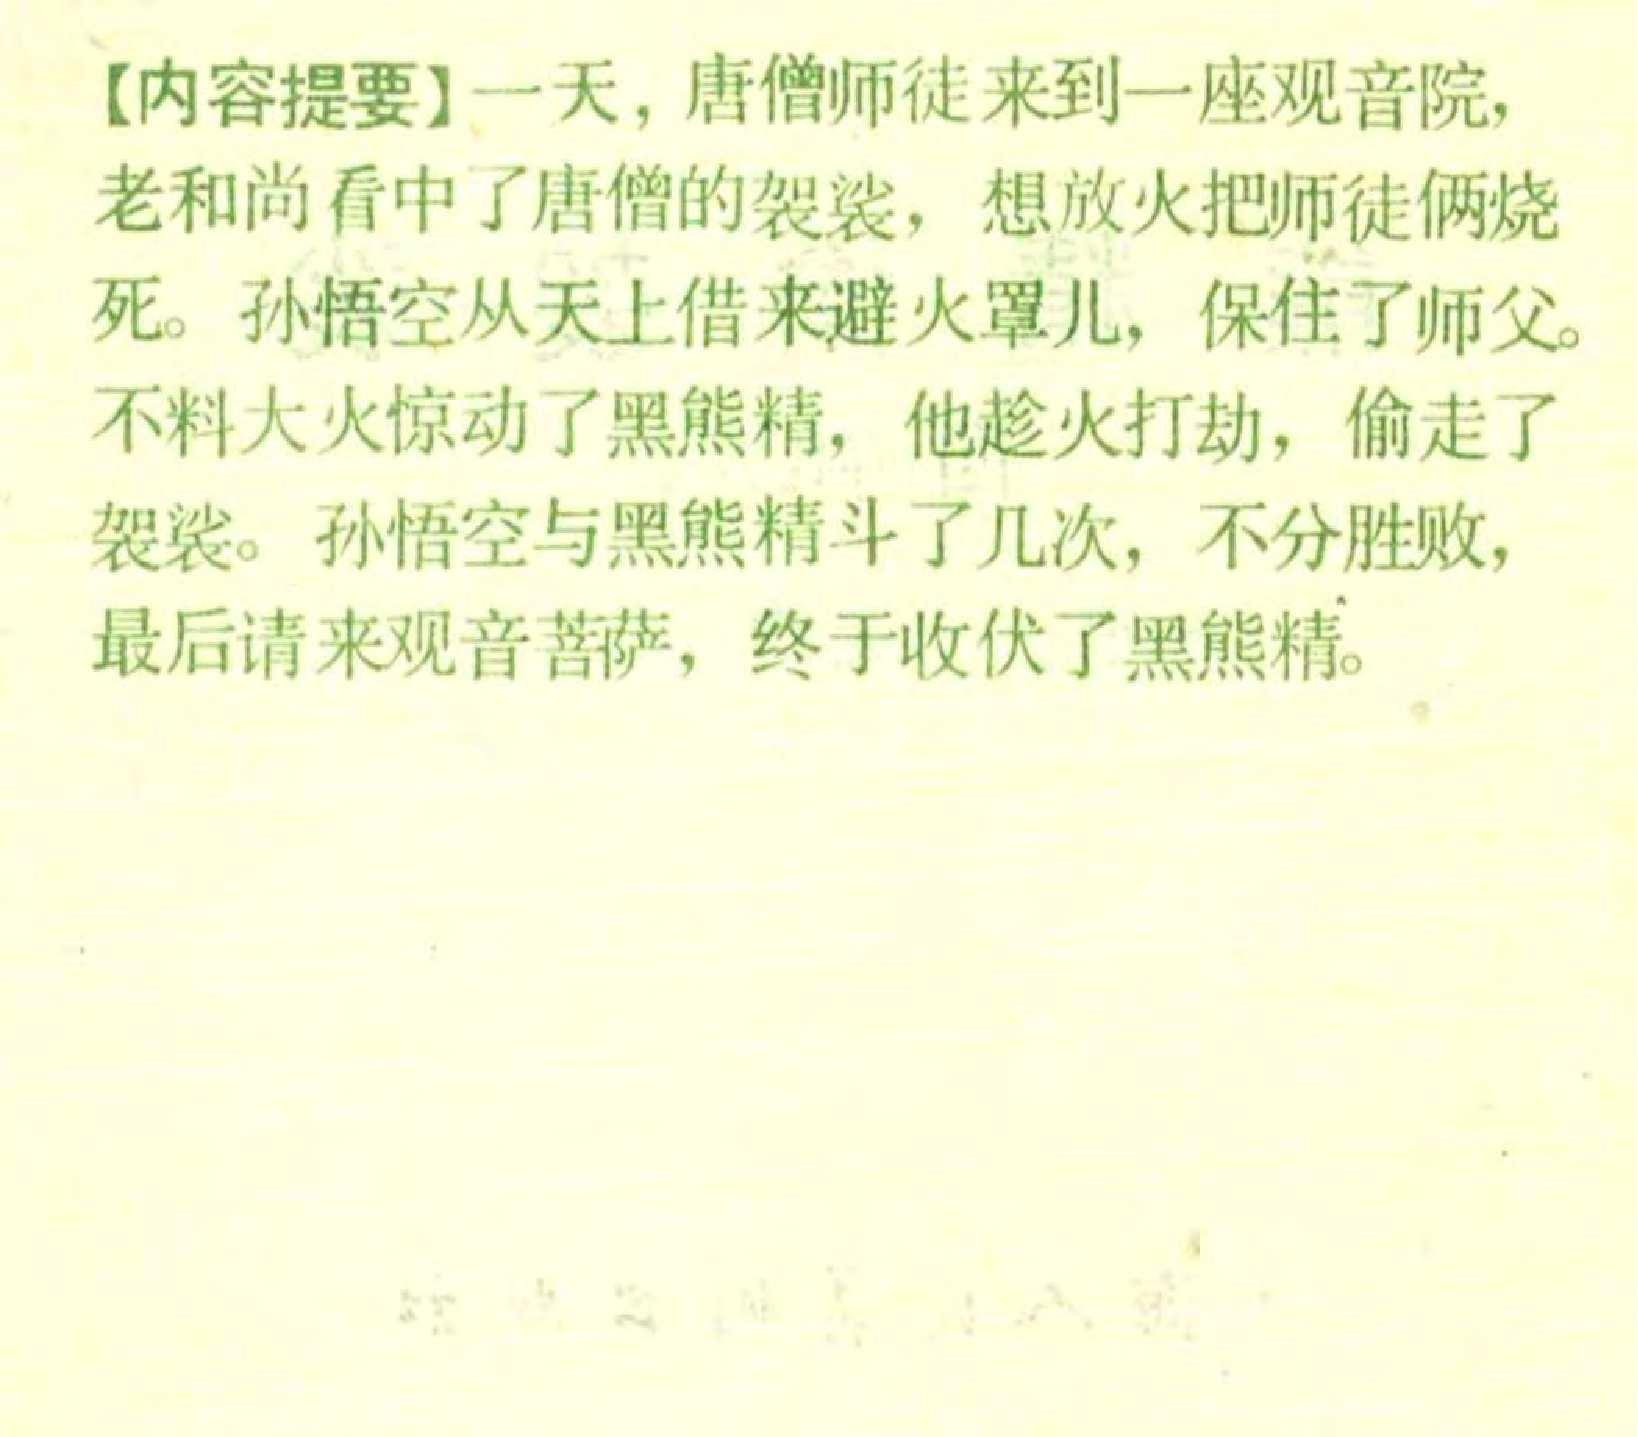 【内容提要】一天，唐僧师徒来到一座观音院，
老和尚看中了唐僧的袈裟，想放火把师徒俩烧
死。孙悟空从天上借来避火罩儿，保住了师父。
不料大火惊动了黑熊精，他趁火打劫，偷走了
袈裟。孙悟空与黑熊精斗了几次，不分胜败，
最后请来观音菩萨，终于收伏了黑熊精。